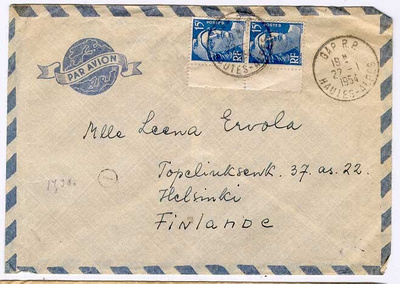 PAR AVION
15F POSTES RF
15F POSTES RF
HAUTES-
GAP R.P.
18 H
22 - 1
1954
HAUTES-ALPES
Mlle Leena Ervola
Topeliuksenk. 37. as. 22.
Helsinki
Finlande